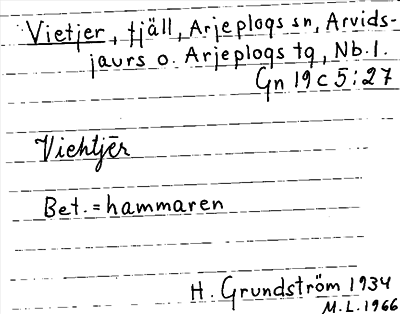 Vietjer, fjäll, Arjeplogs sn, Arvids-
jaurs o. Arjeplogs tg, Nb. l.
Gn 19 c 5:27
Viehtjēr
Bet. = hammaren
H. Grundström 1934
M.L. 1966